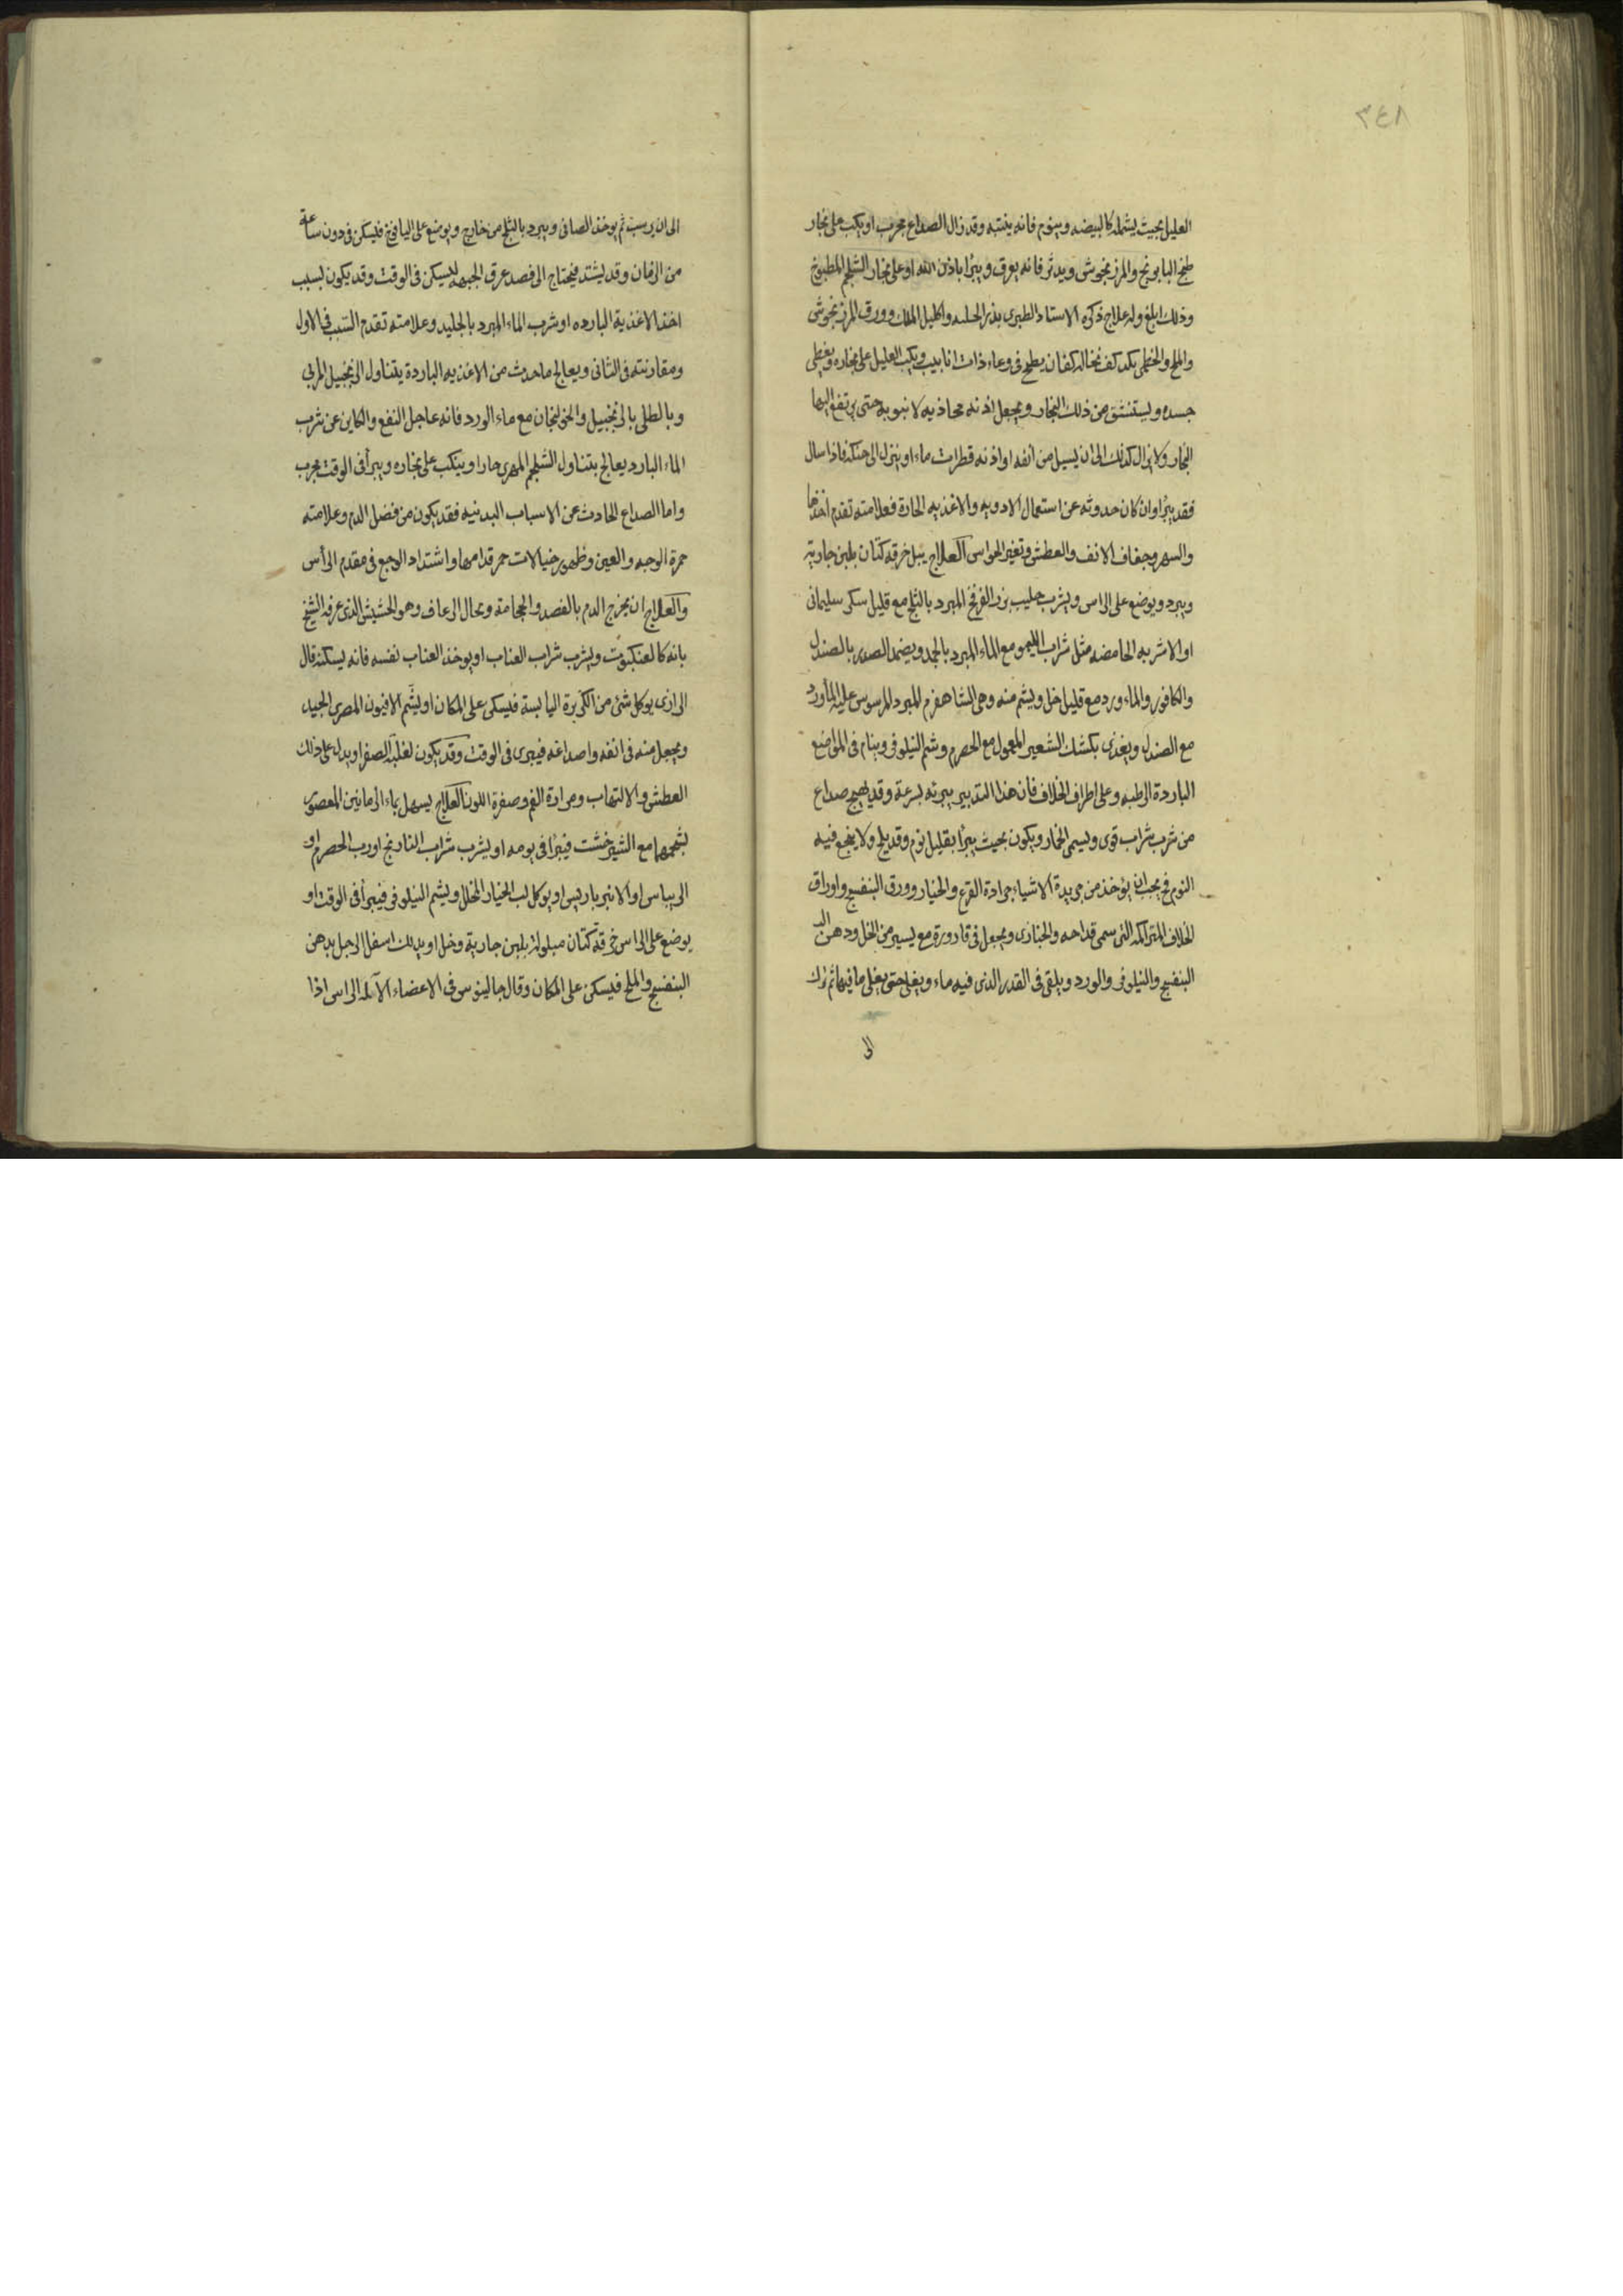 ٣٤٨
العليل بحيث يشمله كالبيضه وينوم فانه ينتبه وقد زال الصداع مجرب او يكب على بخار
طبخ البابونج والمرزنجوش ويدثر فانه يعرق ويبرأ باذن الله او على بخار الشلجم المطبوخ
وذلك ابلغ وله علاج ذكره الاستاد الطبرى بذر الحلبه واكليل الملك وورق المرزنجوش
والملح والخطمى بكد كف نخاله كفان يطبخ فى وعاء ذات انابيب ويكب العليل على بخاره ويغطى
جسده ويستنشق من ذلك البخار ويجعل اذنه محاذيه لانبوبه حتى يرتفع اليها
البخار ولا يزال كذلك الى ان يسيل من انفه او اذنه قطرات ماء او ينزل الى حنكه فاذا سال
فقد يبرأ وان كان حدوثه عن استعمال الادويه والاغذيه الحارة فعلامته تقدم اخذها
والسهر وجفاف الانف والعطش وتغير الحواس العلاج يبل خرقه كتان بلبن جارية
ويبرد ويوضع على الراس ويشرب حليب بزر الفرفخ المبرد بالثلج مع قليل سكر سليمانى
او الاشربه الحامضه مثل شراب الليمو مع الماء المبرد بالجمد ويضمد الصدر بالصندل
والكافور والماء ورد مع قليل خل ويشم منه وهى الشاهفرم المبرد المرسوس عليه المأورد
مع الصندل ويغذى بكشك الشعير المعمول مع الحصرم وشم النيلوفر وينام فى المواضع
الباردة الرطبه وعلى اطراف الخلاف فان هذا التدبير يبرئه بسرعة وقد يهيج صداع
من شرب شراب قوى ويسمى الخمار ويكون بحيث يبرأ بقليل نوم وقد يلح ولا ينجع فيه
النوم فح يجب ان يؤخذ من جريدة الاشياء جرادة القرع والخيار وورق البنفسج واوراق
الخلاف المتراكمه التى سمى قداحه والخبازى ويجعل فى قارورة مع يسير من الخل ودهن الد
البنفسج والنيلوفر والورد ويلقى فى القدر الذى فيه ماء ويغلى حتى يغلى ما فيها ثم يترك
الى
الى ان يرسب ثم يوخذ الصافى ويبرد بالثلج من خارج ويوضع على اليافوخ فيسكن فى دون ساعة
من الزمان وقد يشتد فيحتاج الى فصد عرق الجبهه ليسكن فى الوقت وقد يكون بسبب
اخذ الاغذية البارده او شرب الماء المبرد بالجليد وعلامته تقدم السبب فى الاول
ومقارنته فى الثانى ويعالج ما حدث من الاغذيه الباردة يتناول الزنجبيل المربى
وبالطلى بالزنجبيل والخولنجان مع ماء الورد فانه عاجل النفع والكاين عن شرب
الماء البارد يعالج بتناول الشلجم المهرى حارا وينكب على بخاره ويبرأ فى الوقت مجرب
واما الصداع الحادث عن الاسباب البدنيه فقد يكون من فضل الدم وعلامته
حمرة الوجه والعين وظهور خيالات حمر قدامها واشتداد الوجع فى مقدم الرأس
والعلاج ان يخرج الدم بالفصد والحجامة ويحال الرعاف وهو الحشيش الذى عرفه الشيخ
بانه كالعنكبوت ويشرب شراب العناب او يوخذ العناب نفسه فانه يسكنه قال
الرازى يوكل شئ من الكزبرة اليابسة فيسكن على المكان او يشم الافيون المصرى الجيد
ويجعل منه فى انفه واصداغه فيبرى فى الوقت وقد يكون لغلبة الصفرا ويدل على ذلك
العطش والالتهاب ومرارة الفم وصفرة اللون العلاج يسهل بماء الرمانين المعصور
بشحمهما مع الشيرخشت فيبرأ فى يومه او يشرب شراب النارنج او رب الحصرم او
الريباس او الانبرباريس او يوكل لب الخيار المخلل ويشم النيلوفر فيبرأ فى الوقت او
يوضع على الراس خرقة كتان مبلولة بلبن جارية وخل او يدلك اسفل الرجل بدهن
البنفسج والملح فيسكن على المكان وقال جالينوس فى الاعضاء الآلمه الراس اذا